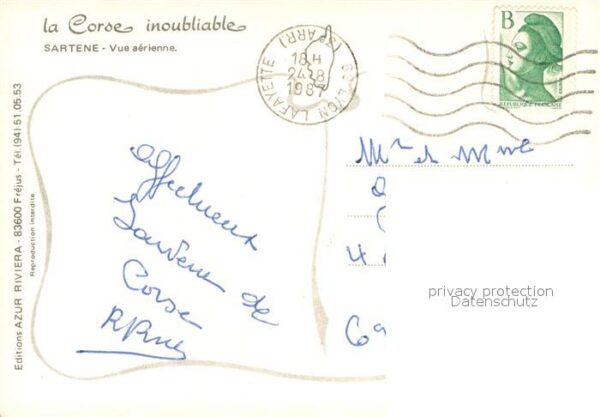 la Corse inoubliable
SARTENE - Vue aérienne.
Editions AZUR RIVIERA - 83600 Fréjus - Tél. (94) 51.05.53
Reproduction Interdite
LYON LAFAYETTE (3e ARR)
18 H
24-8
1987
B
REPUBLIQUE FRANÇAISE
Affectueux
Souvenir de
Corse
Mr et Mme
4
69
privacy protection
Datenschutz